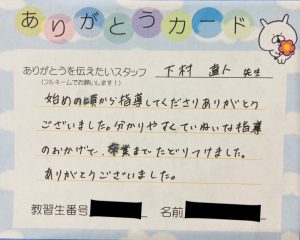 ありがとうカード
ありがとうを伝えたいスタッフ 下村 直人 先生
(フルネームでお願いします!)
始めの頃から指導してくださりありがとう
ございました。分かりやすくていねいな指導
のおかげで、卒業までたどりつけました。
ありがとうございました。
教習生番号 名前